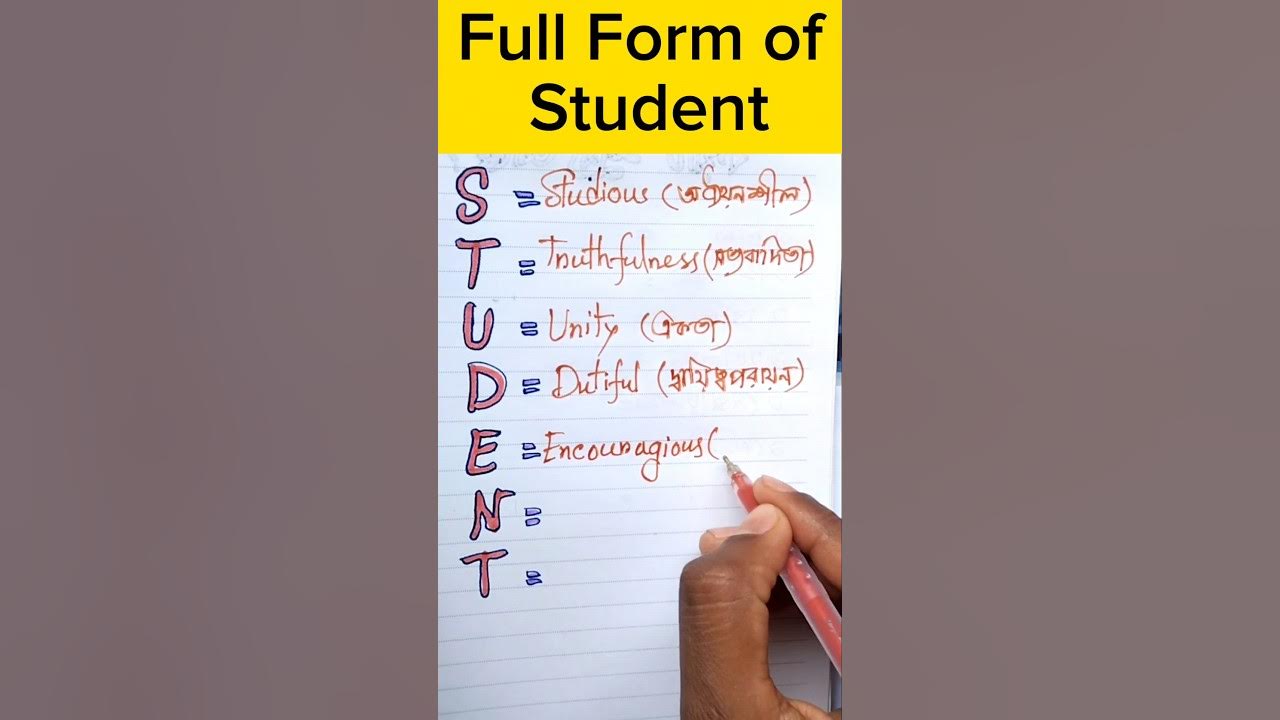 Full Form of
Student
S = Studious (অধ্যয়নশীল)
T = Truthfulness (সত্যবাদিতা)
U = Unity (একতা)
D = Dutiful (দ্বায়িত্বপরায়ন)
E = Encouragious (
N =
T =